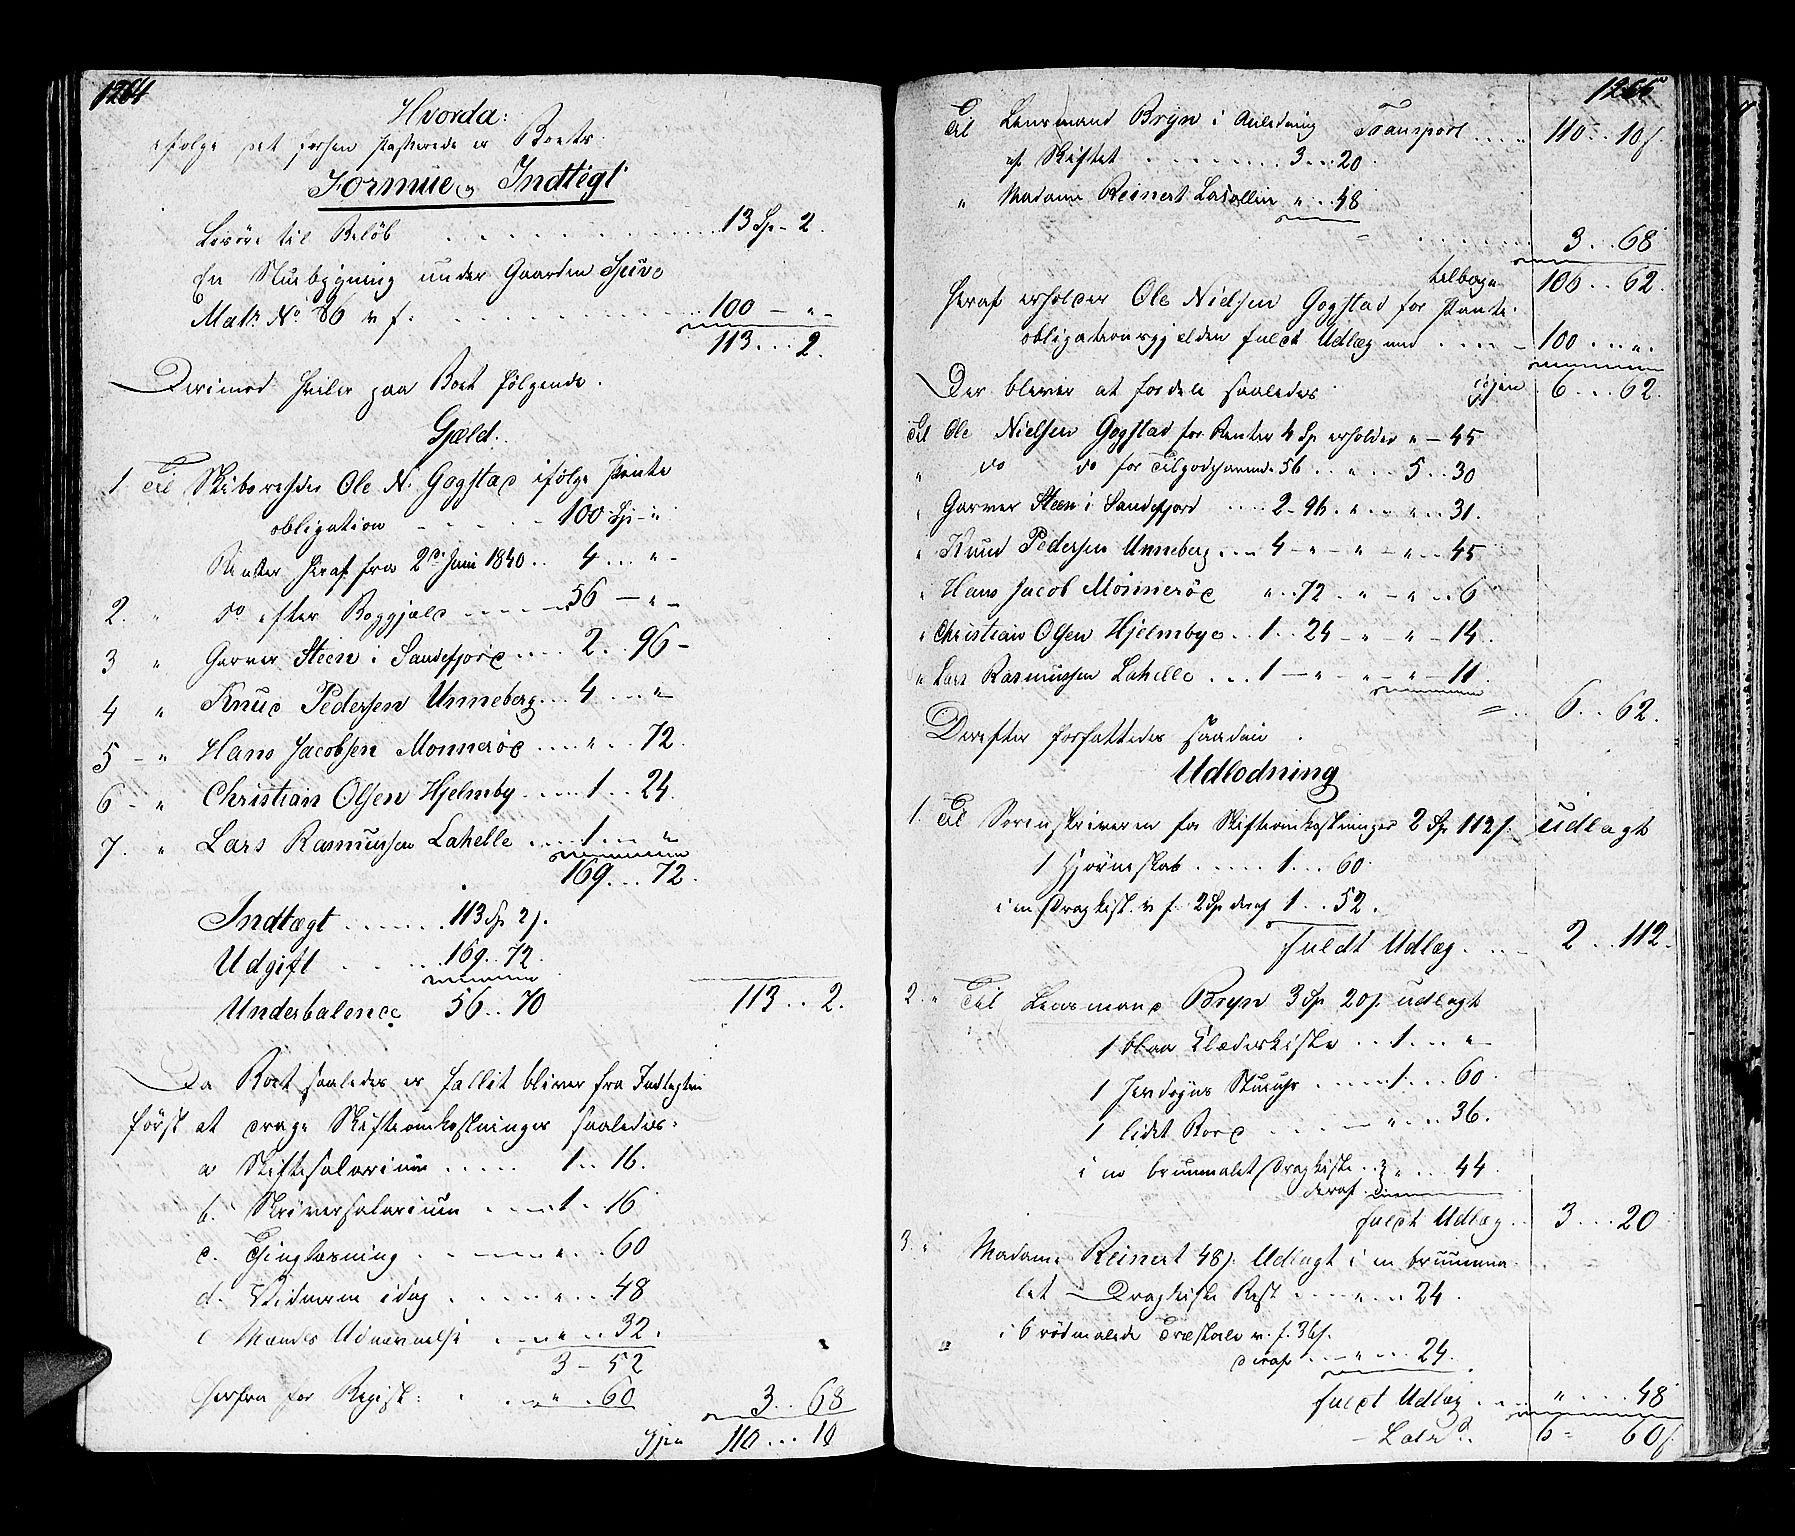 1264
Hvorda:
ifølge det forhen passerede er Boets
Formue og Indtegt
Løsøre til Beløb . . . 13 Sp - 2.
En Stuebygning under Gaarden
Matr. No 86 v f. . . . 100 - " -
113 . . . 2.
Derimod hviler paa Boet følgende
Gjeld.
1. Til Skibsreder Ole N. Gogstad ifølge Pante
obligation - - - 100 Sp - "
Renter heraf fra 2den Juni 1840 . . 4 . . . " -
2. " do efter Boggjæld . . . 56 - " -
3 " Garver Steen i Sandefjord . . . . 2 . . 96 -
4 " Knud Pedersen Unneberg . . . 4 . . . " -
5 - " Hans Jacobsen Monnerød . . . . " . . 72.
6 - " Christian Olsen Hjelmby . . . . 1 . . 24.
7. " Lars Rasmussen Lahelle . . . 1 . . . "
169 . . . 72.
Indtægt . . . . . . 113 Sp 2 s.
Udgift . . . . 169 . . 72.
Underbalence 56 . . 70
113 . . 2.
Da Boet saaledes er fallit bliver fra Indtegten
først at drage Skifteomkostninger saaledes:
a Skiftesalarium . . . . . 1 . . 16.
b. Skriversalarium . . . . 1 . . 16
c. Thinglæsning . . . . " . . 60
d. Vidnerne idag . . . . " . . 48
e Mænds Udnævnelse . . . " . . 32.
3 - 52
herfra for Regist: . . . " . 60
3 . . 68
Igjen 110 . . . 10
1265
Transport . . . . 110 . . 10 s.
Til Lensmand Bryn i Anledning
af Skiftet . . . . . . 3 . . 20.
" Madame Reinert Laskellin " . . 48
= . . . . . . 3 . . . 68
tilbage 106 . . 62.
Heraf erholder Ole Nielsen Gogstad for Pante
obligationsgjælden fuldt Udlæg med . . . . 100 . . . ".
Der bliver at fordele saaledes igjen 6 . . . 62.
Til Ole Nielsen Gogstad for Renter 4 Sp erholder " - 45
" do do for Tilgodehavende 56 . . " . . . 5 . . 30
" Garver Steen i Sandefjord . . . . 2 - 96 . " . . " . . 31.
" Knud Pedersen Unneberg . . . 4 - " - " - " . . 45
" Hans Jacob Monnerød " . . 72 . " - " . . 6
" Christian Olsen Hjelmbye . . 1 . . 24 - " - " - 14.
" Lars Rasmussen Lahelle . . . 1 - " - " - " - 11.
= . . 6 . . 62.
Derefter forfattedes saadan
Udlodning
1. Til Sorenskriveren for Skifteomkostninger 2 Sp 112 s. udlagt
1 Hjørneskab . . . . . 1 . . . 60.
i en Dragkist. v f. 2 Sp deraf 1 . . 52.
fuldt Udlæg . . . . 2 . . . 112.
2. " Til Lensmand Bryn 3 Sp 20 s. udlagt
1 blaa Klædeskiste . . . 1 . . . " -
1 Stueuhr . . . . . 1 . . . 60.
1 lidet Bord . . . . . " . . . 36.
i en bruunmalet Dragkiste . . " . . . 44.
deraf
fuldt Udlæg . . 3 . . . 20
3. " Madame Reinert 48 s. Udlagt i en bruunma
let Dragkiste Rest . . . . " . . 24.
i 6 rødmalede Træstole v. f. 36 s.
deraf . . . " . . . 24.
fuldt Udlæg . . . . " . . . . 48
Lateris . . 6 = 60 s.